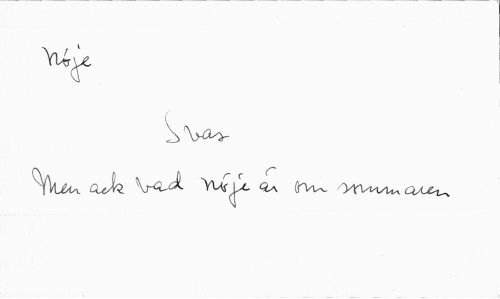 Nöje
Svar
Men ack vad nöje är om sommaren